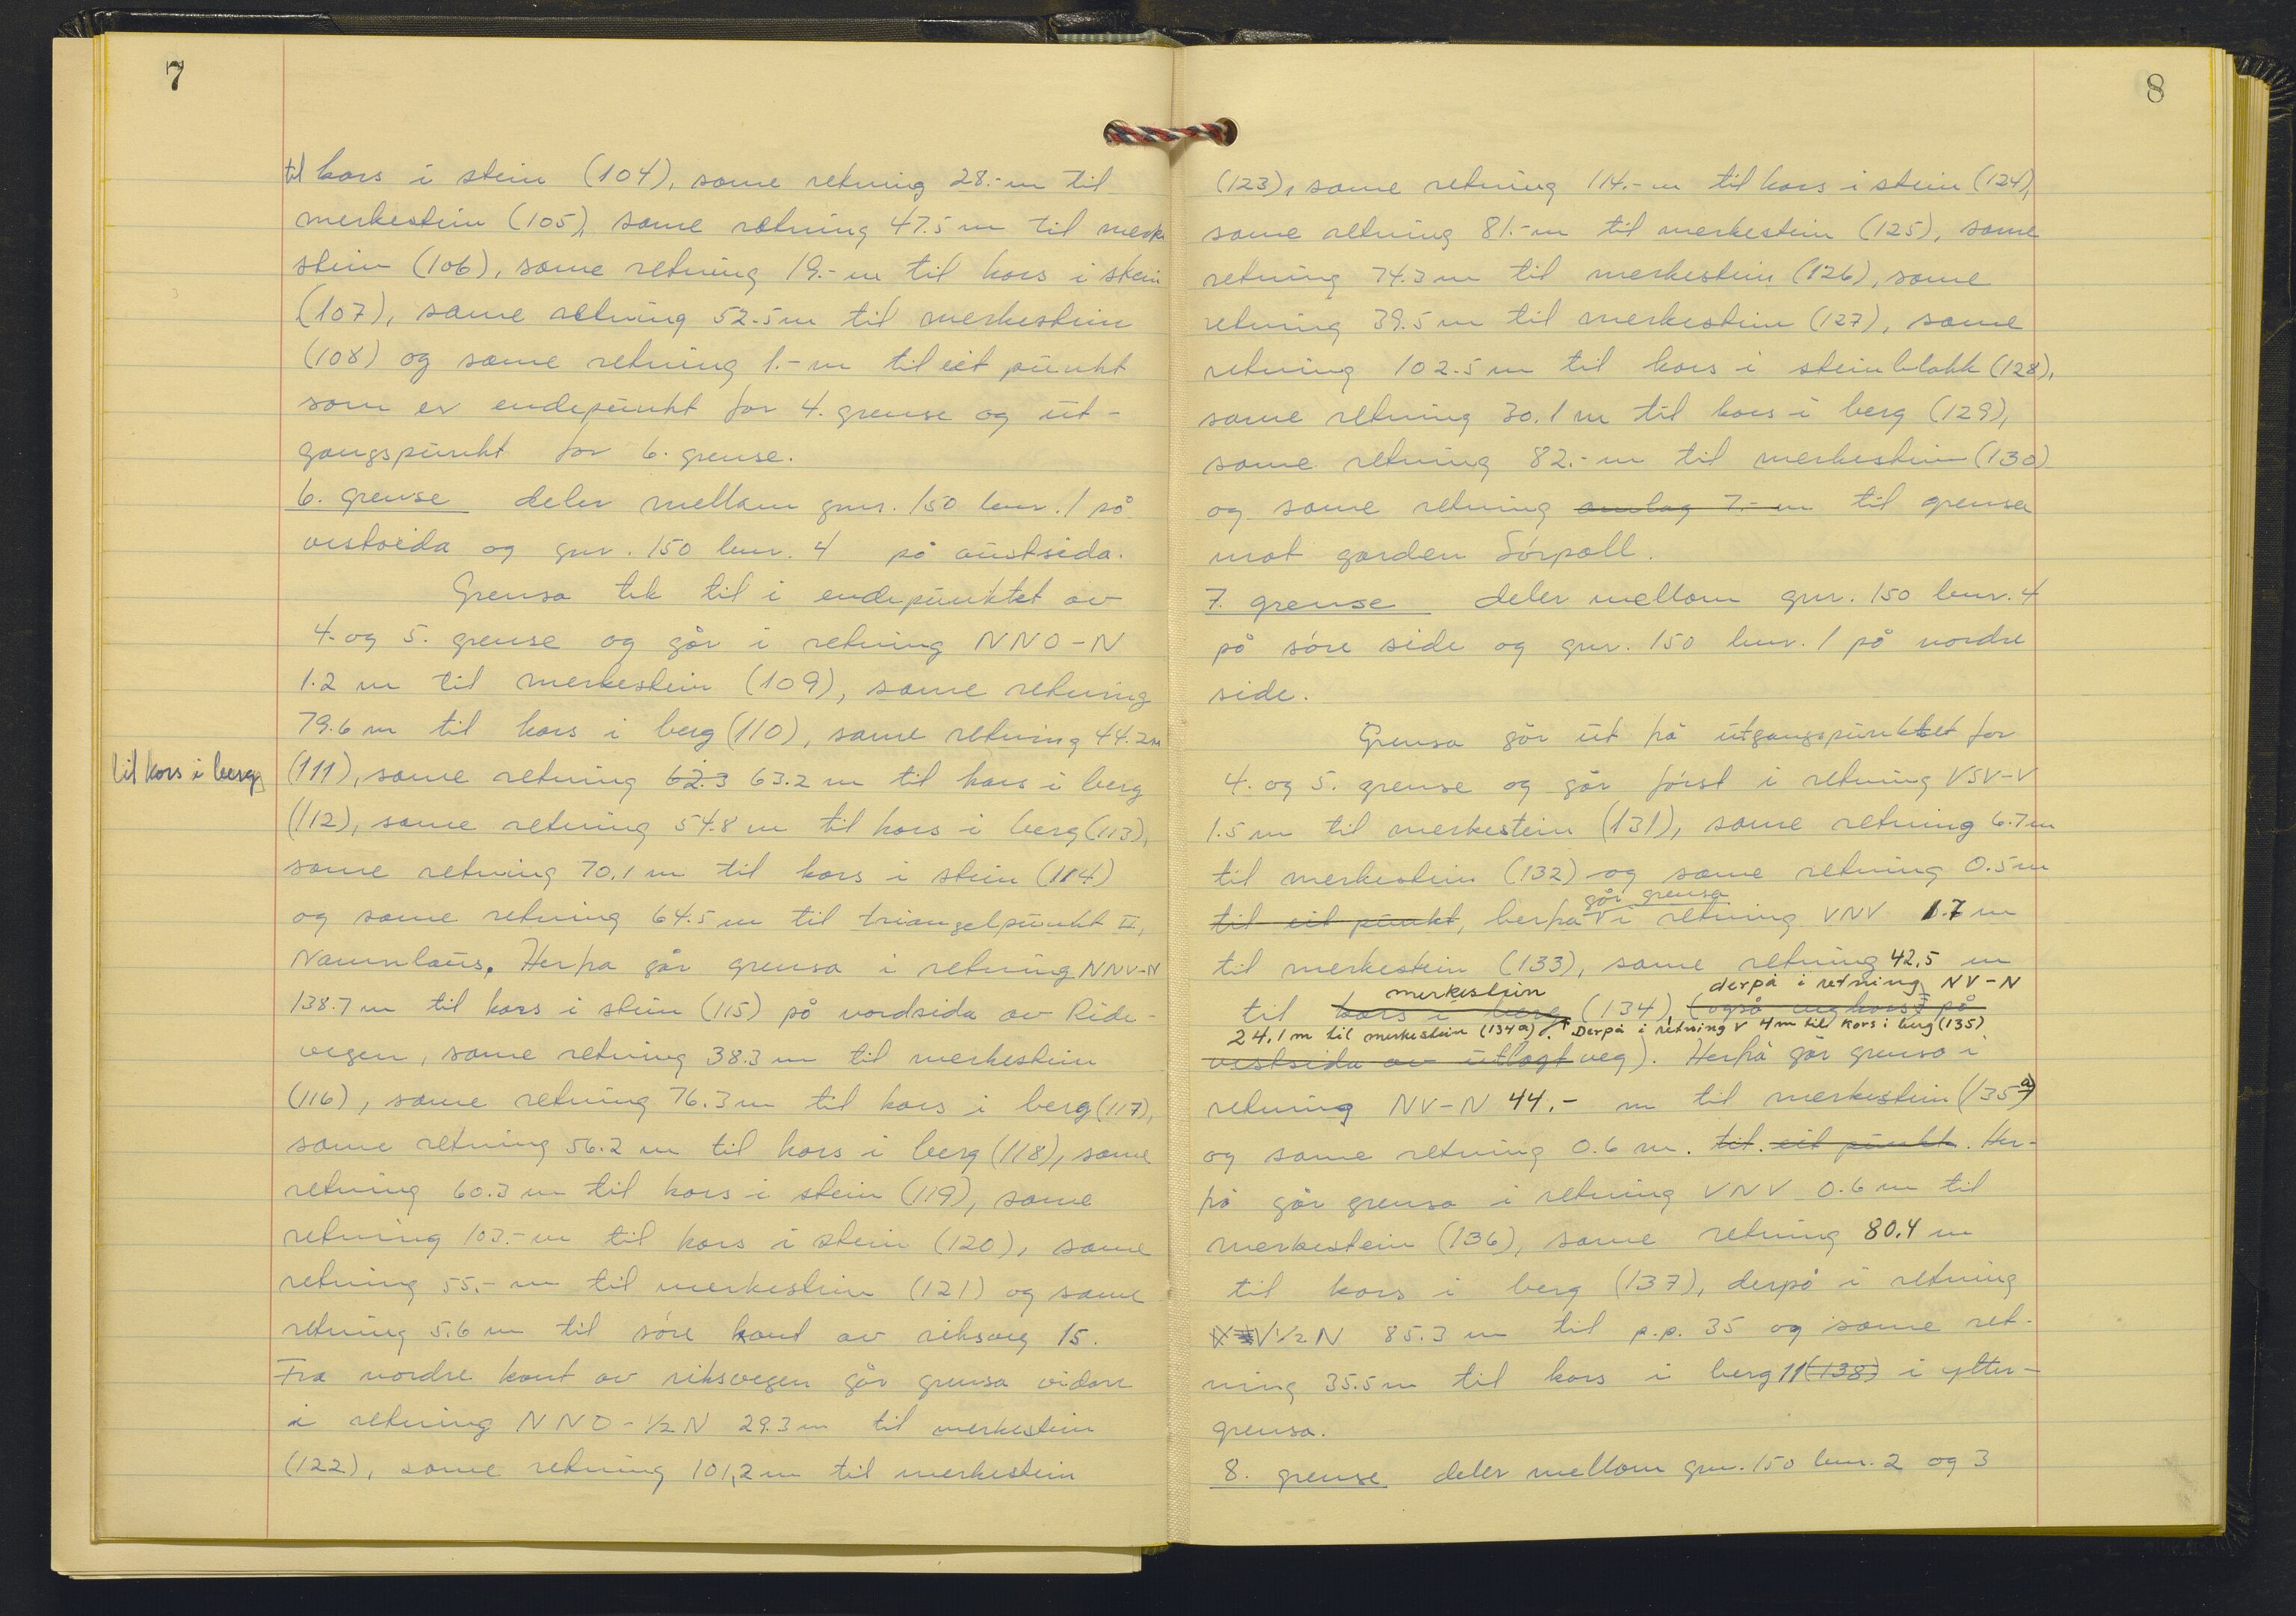 7
til kors i stein (104), same retning 28.- m til
merkestein (105), same retning 47.5 m til merke
stein (106), same retning 19.- m til kors i stein
(107), same retning 52.5 m til merkestein
(108) og same retning 1.- m til eit punkt
som er endepunkt for 4. grense og ut-
gangspunkt for 6. grense.
6. grense deler mellom gnr. 150 bnr. 1 på
vestsida og gnr. 150 bnr. 4 på austsida.
Grensa tek til i endepunktet av
4. og 5. grense og går i retning NNO-N
1.2 m til merkestein (109), same retning
79.6 m til kors i berg (110), same retning 44.2 m
til kors i berg
(111), same retning 62.3 63.2 m til kors i berg
(112), same retning 54.8 m til kors i berg (113),
same retning 70.1 m til kors i stein (114)
og same retning 64.5 m til triangelpunkt II,
Namnlaus. Herfra går grensa i retning NNV-N
138.7 m til kors i stein (115) på nordsida av Ride-
vegen, same retning 38.3 m til merkestein
(116), same retning 76.3 m til kors i berg (117),
same retning 56.2 m til kors i berg (118), same
retning 60.3 m til kors i stein (119), same
retning 103.- m til kors i stein (120), same
retning 55.- m til merkestein (121) og same
retning 5.6 m til søre kant av riksveg 15.
Fra nordre kant av riksvegen går grensa vidare
i retning NNO-½N 29.3 m til merkestein
(122), same retning 101,2 m til merkestein
8
(123), same retning 114.- m til kors i stein (124),
same retning 81.- m til merkestein (125), same
retning 74.3 m til merkestein (126), same
retning 39.5 m til merkestein (127), same
retning 102.5 m til kors i steinblokk (128),
same retning 30.1 m til kors i berg (129),
same retning 82.- m til merkestein (130)
og same retning omlag 7.- m til grensa
mot garden Sørpoll.
7. grense deler mellom gnr. 150 bnr. 4
på søre side og gnr. 150 bnr. 1 på nordre
side.
Grensa går ut frå utgangspunktet for
4. og 5. grense og går først i retning VSV-V
1.5 m til merkestein (131), same retning 6.7 m
til merkestein (132) og same retning 0.5 m
går grensa
til eit punkt, herfra i retning VNV 1.7 m
til merkestein (133), same retning 42,5 m
merkestein derpå i retning NV-N
til kors i berg (134), (også vegkors på
24,1 m til merkestein (134a). Derpå i retning V 4m til kors i berg (135)
vestsida av utlagt veg). Herfrå går grensa i
retning NV-N 44.- m til merkestein (135a)
og same retning 0.6 m. til eit punkt. Her-
frå går grensa i retning VNV 0.6 m til
merkestein (136), same retning 80,4 m
til kors i berg (137), derpå i retning
V½N 85.3 m til p.p. 35 og same ret-
ning 35.5 m til kors i berg 11 (138) i ytter-
grensa.
8. grense deler mellom gnr. 150 bnr. 2 og 3